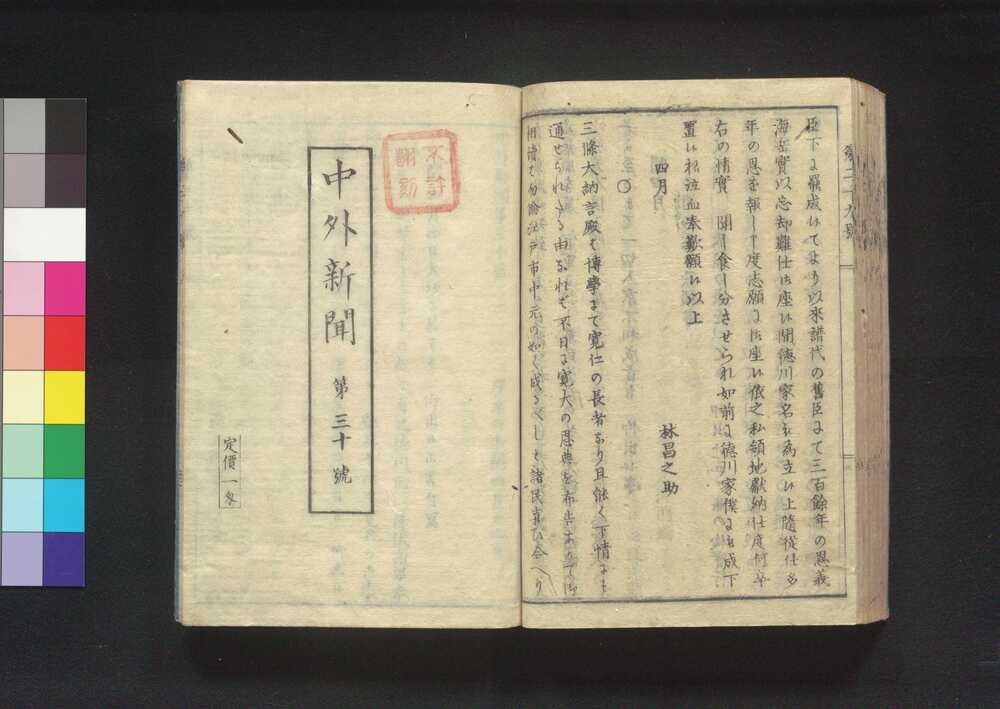 第二十九號
臣下に羅成候てより以來譜代の舊臣にて三百餘年の恩義
海岳實以忘却難仕御座候間德川家名被為立候上隨從仕多
年の恩を報し度志願に御座候依之私領地獻納仕度何卒
右の情實聞し食し分させられ如前に德川家僕に被成下
置候様泣血奉歎願候以上
四月
林昌之助
〇
三條大納言殿は博學にて寛仁の長者なり且能く下情にも
通せられたる由なれは不日に寛大の恩典を布告ありて御
相續は勿論江戸市中元の如く成るへしと諸民喜ひ合へり
不許
翻刻
中外新聞 第三十號
定價一匁